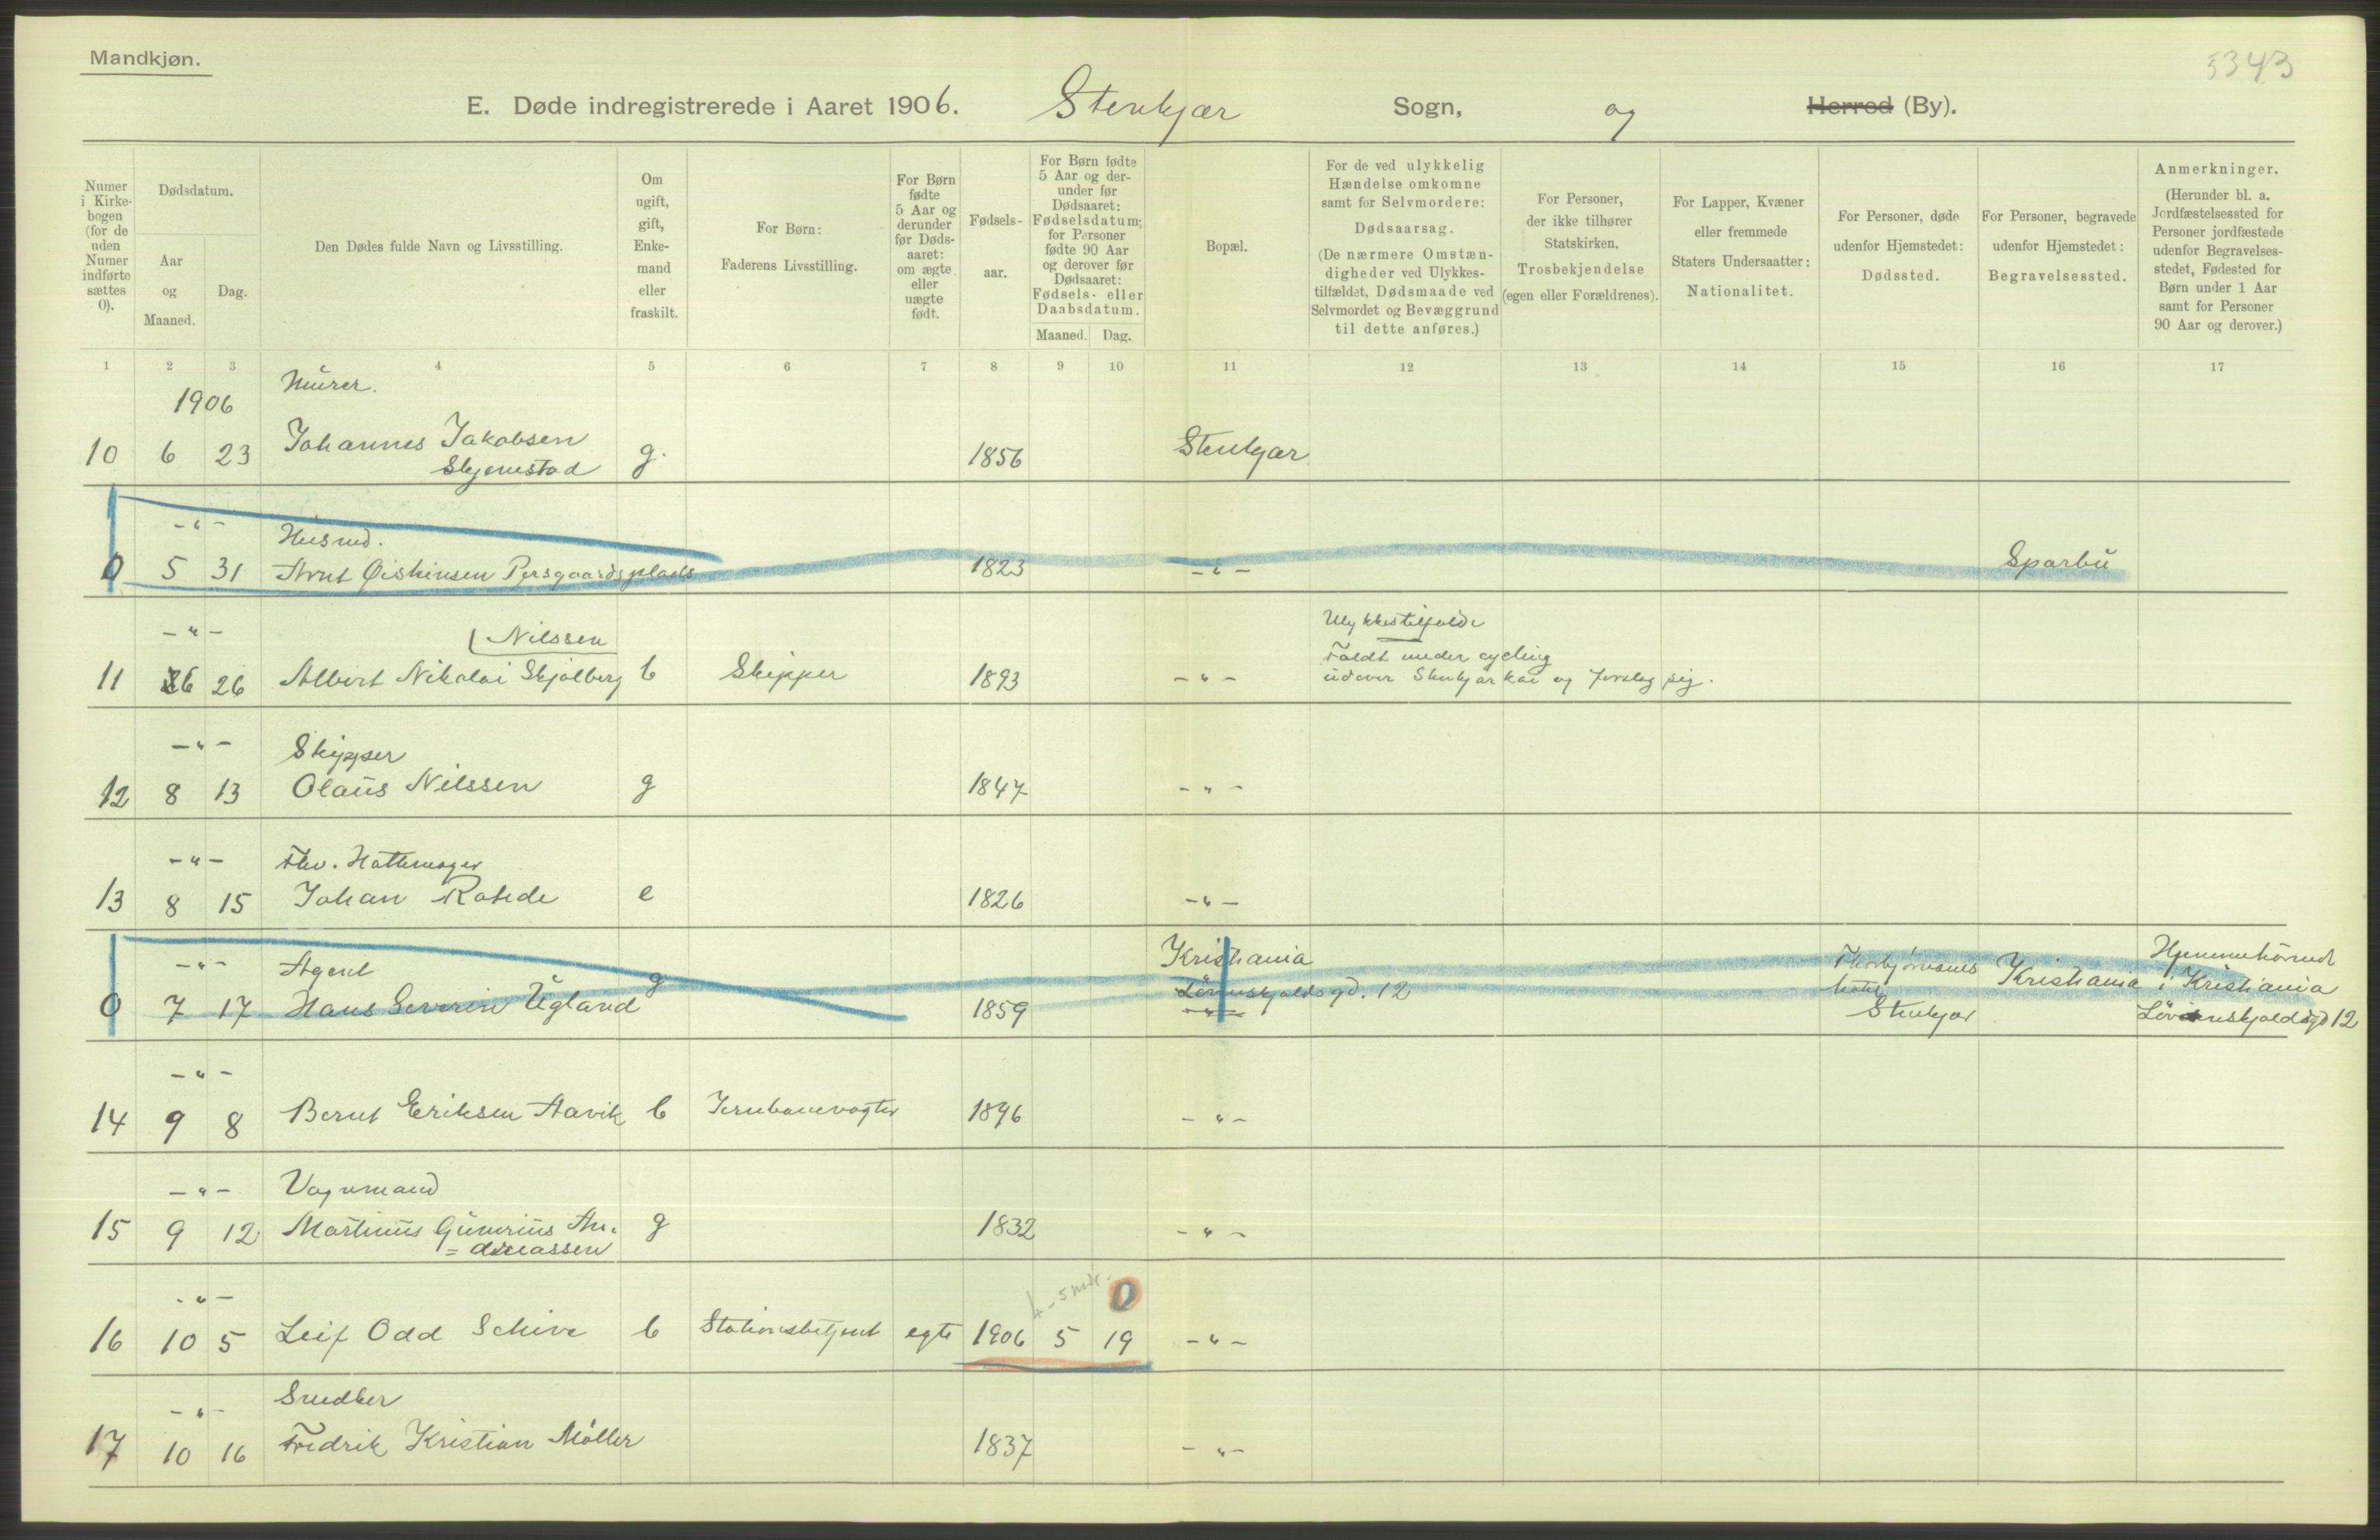 Mandkjøn.
5343
E. Døde indregistrerede i Aaret 1906. Stenkjær Sogn, og Herred (By).
Numer i Kirkebogen (for de uden Numer indførte sættes 0).
Dødsdatum.
Aar og Maaned.
Dag.
Den Dødes fulde Navn og Livsstilling.
Om ugift, gift, Enkemand eller fraskilt.
For Børn:
Faderens Livsstilling.
For Børn fødte 5 Aar og derunder før Dødsaaret: om ægte eller uægte født.
Fødselsaar.
For Børn fødte 5 Aar og derunder før Dødsaaret: Fødselsdatum; for Personer fødte 90 Aar og derover før Dødsaaret: Fødsels- eller Daabsdatum.
Maaned. Dag.
Bopæl.
For de ved ulykkelig Hændelse omkomne samt for Selvmordere:
Dødsaarsag.
(De nærmere Omstændigheder ved Ulykkestilfældet, Dødsmaade ved Selvmordet og Bevæggrund til dette anføres.)
For Personer, der ikke tilhører Statskirken,
Trosbekjendelse
(egen eller Forældrenes).
For Lapper, Kvæner eller fremmede Staters Undersaatter:
Nationalitet.
For Personer, døde udenfor Hjemstedet:
Dødssted.
For Personer, begravede udenfor Hjemstedet:
Begravelsessted.
Anmerkninger.
(Herunder bl. a. Jordfæstelsessted for Personer jordfæstede udenfor Begravelsesstedet, Fødested for Børn under 1 Aar samt for Personer 90 Aar og derover.)
1 2 3 4 5 6 7 8 9 10 11 12 13 14 15 16 17
1906 Murer.
10 6 23 Johannes Jakobsen g. 1856 Stenkjær
Skjemstad
-"- Husmd.
0 5 31 Arnt Øistensen Persgaardsplads 1823 -"- Sparbu
-"- (Nilssen Ulykkestilfælde
Faldt under cycling
11 6 26 Albert Nikolai Skjølberg b Skipper 1893 -"- udover Stenkjær kai og forslog sig.
-"- Skipper
12 8 13 Olaus Nilssen g 1847 -"-
-"- Fhv. Hattemager
13 8 15 Johan Rohde e 1826 -"-
-"- Agent g Kristiania Hjemmehörende
0 7 17 Hans Severin Ugland 1859 Lövenskjoldsgd. 12 Stenkjær Kristiania i Kristiania
Lövenskjoldsgd 12
-"-
14 9 8 Bernt Eriksen Aavik b Jernbanevogter 1896 -"-
-"- Vognmand
15 9 12 Martinus Gunerius An- g 1832 -"-
=dreassen
-"- 4-5 mdr. 0
16 10 5 Leif Odd Schive b Stationsbetjent egte 1906 5 19 -"-
-"- Snedker
17 10 16 Fredrik Kristian Möller 1837 -"-